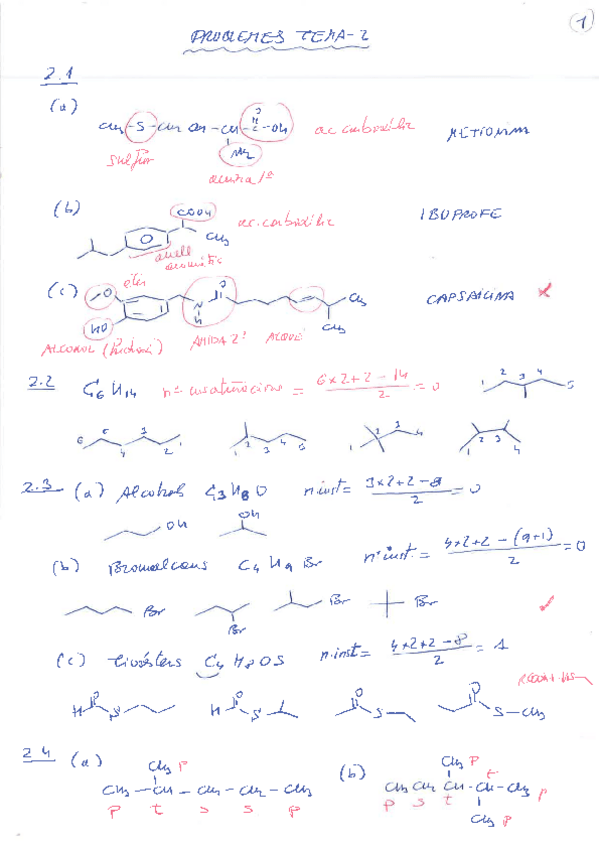 1
PROBLEMES TEMA-2
2.1
(a)
CH3-S-CH2 CH2-CH-C-OH ac carboxílic METIONINA
O
NH2
sulfur
amina 1ª
(b)
COOH ac. carboxílic IBUPROFÈ
CH3
anell aromàtic
(c) O èter CH3 CAPSAICINA
HO N H O CH3
ALCOHOL AMIDA 2ª ALQUÈ
2.2 C6H14 nº insaturacions = 6x2+2-14 / 2 = 0
1 2 3 4 5
6 5 4 3 2 1
1 2 3 4 5
1 2 3 4
1 2 3 4
2.3 (a) Alcohols C3H8O n.inst = 3x2+2-8 / 2 = 0
OH OH
(b) Bromoalcans C4H9Br nº inst. = 4x2+2-(9+1) / 2 = 0
Br Br Br Br
(c) Tioèsters C4H8OS n.inst = 4x2+2-8 / 2 = 1
H O S H O S O S O S-CH3
2.4 (a) CH3 p (b) CH3 p
CH3-CH-CH2-CH2-CH3 CH3 CH2 CH-CH-CH3
p t s s p p s t t p
CH3 p